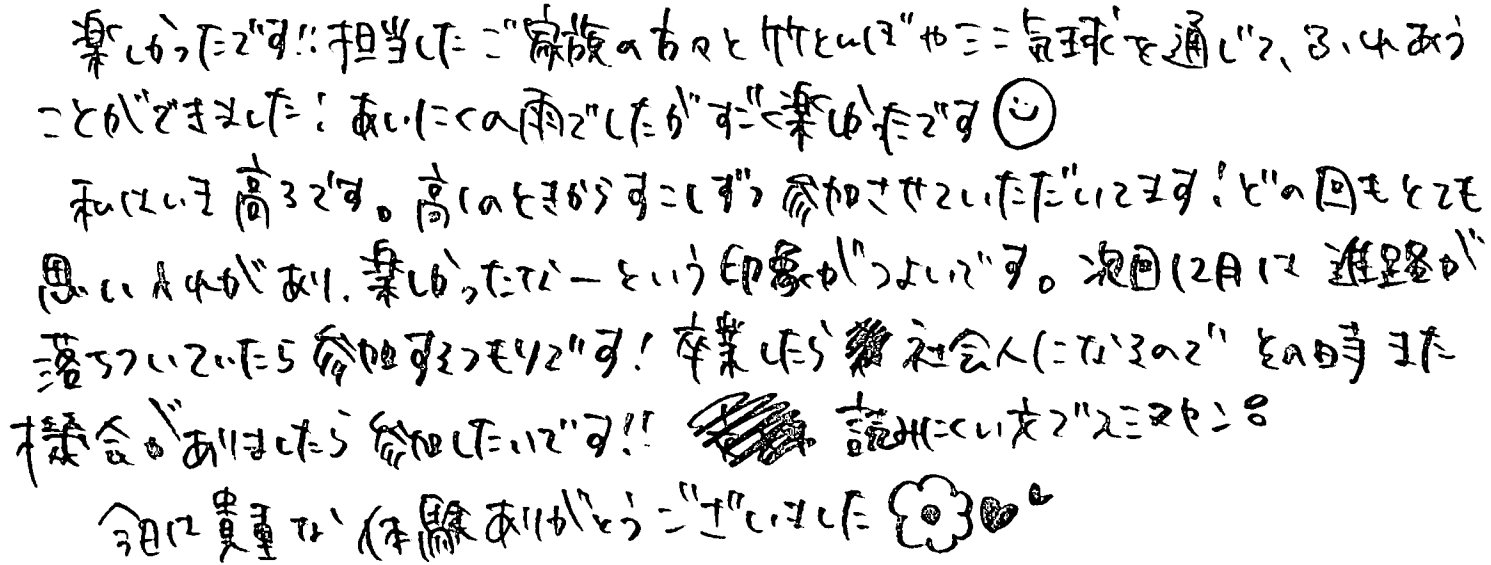 楽しかったです!!担当したご家族の方々と竹とんぼやミニ気球を通じて、ふれあう
ことができました!あいにくの雨でしたがすごく楽しかったです
私はいま高3です。高1のときからすこしずつ参加させていただいてます!どの回もとても
思い入れがあり、楽しかったなーという印象がつよいです。次回12月は進路が
落ちついていたら参加するつもりです!卒業したら社会人になるのでその時また
機会がありましたら参加したいです!!読みにくい文でスミマセン。
今日は貴重な体験ありがとうございました